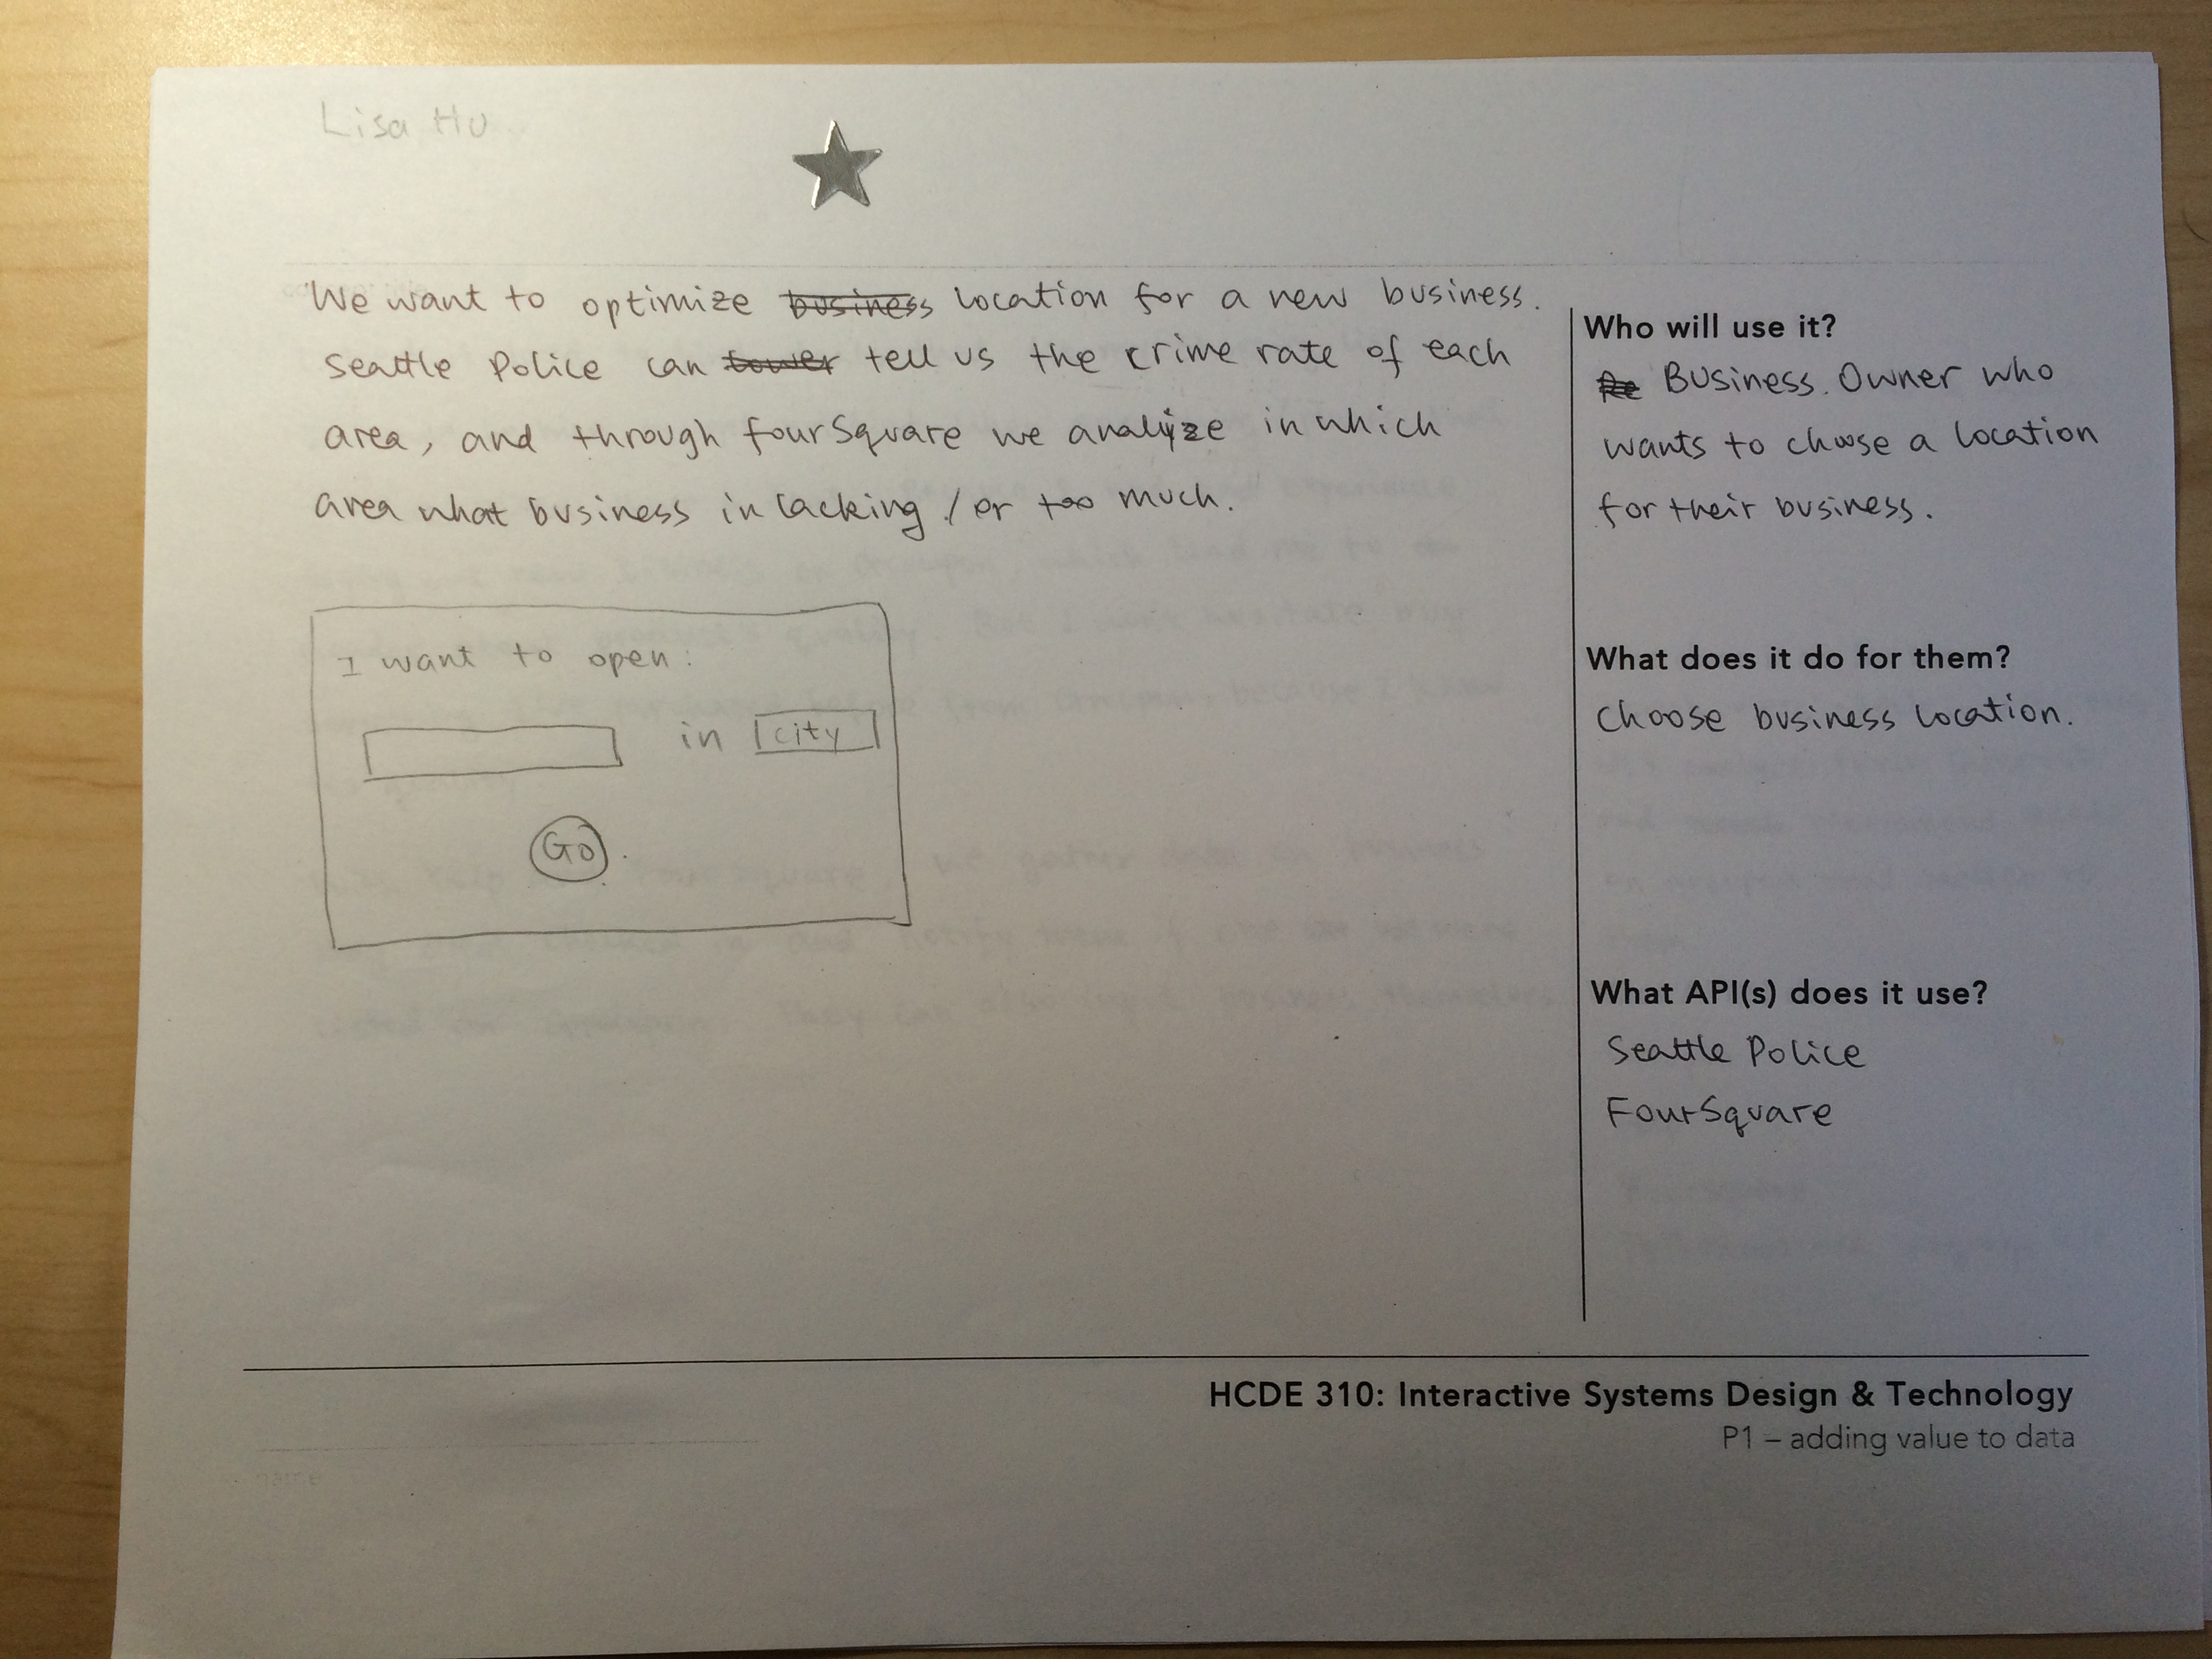 Lisa Hu
We want to optimize business location for a new business.
Seattle Police can tower tell us the crime rate of each
area, and through fourSquare we analyze in which
area what business in lacking / or too much.
I want to open:
in city
Go
Who will use it?
Re Business Owner who
wants to choose a location
for their business.
What does it do for them?
Choose business location.
What API(s) does it use?
Seattle Police
FourSquare
HCDE 310: Interactive Systems Design & Technology
P1 – adding value to data
name